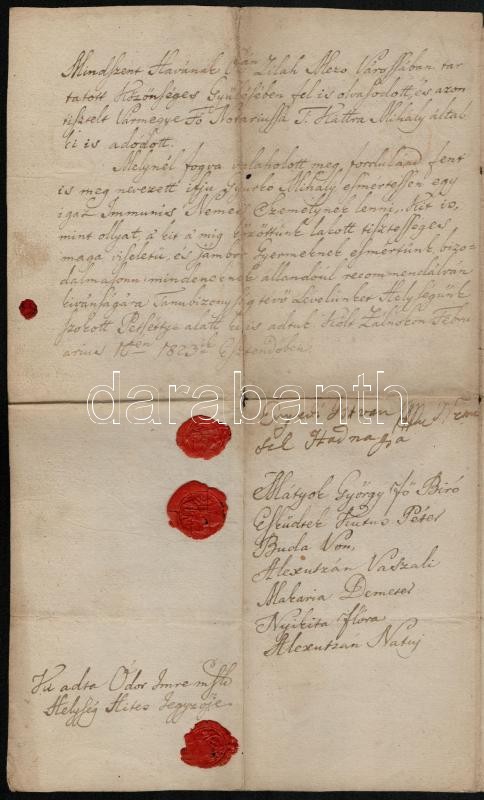 Mindszent Havának Zilah Mezo Várossában tar
tatott Közönséges Gyülésében fel is olvasodott és azon
tisztelt Vármegye Fő Notariussa T. Kattra Mihály által
ki is adódott.
Melynél fogva valaholott meg forduland fent
is meg nevezett ifju Mihály esmertessen egy
igaz Immunis Nemes Személynek lenni, Kit is,
mint ollyat, a kit a mig közöttünk lakott tisztességes
maga viseletü, és jámbor Gyermeknek esmértünk, bizo-
dalmason mindeneknek állandóúl recommendálván
kivánságára Tanubizonyság tévő Levelünket Helységünk
szokott Petséttye alatt ki is adtuk. Költ Zálnokon Febru
arius 1823 Esztendőben
darabanth
István
Hadnagya
Mátyok György Fő Biró
Esküdtek Péter
Buda Von,
Alexutzán Vaszali
Makaria Demeter
Nyikita Flóra
Alexutzán
Ki adta Ódor Imre
Helység Hites Jegyzője